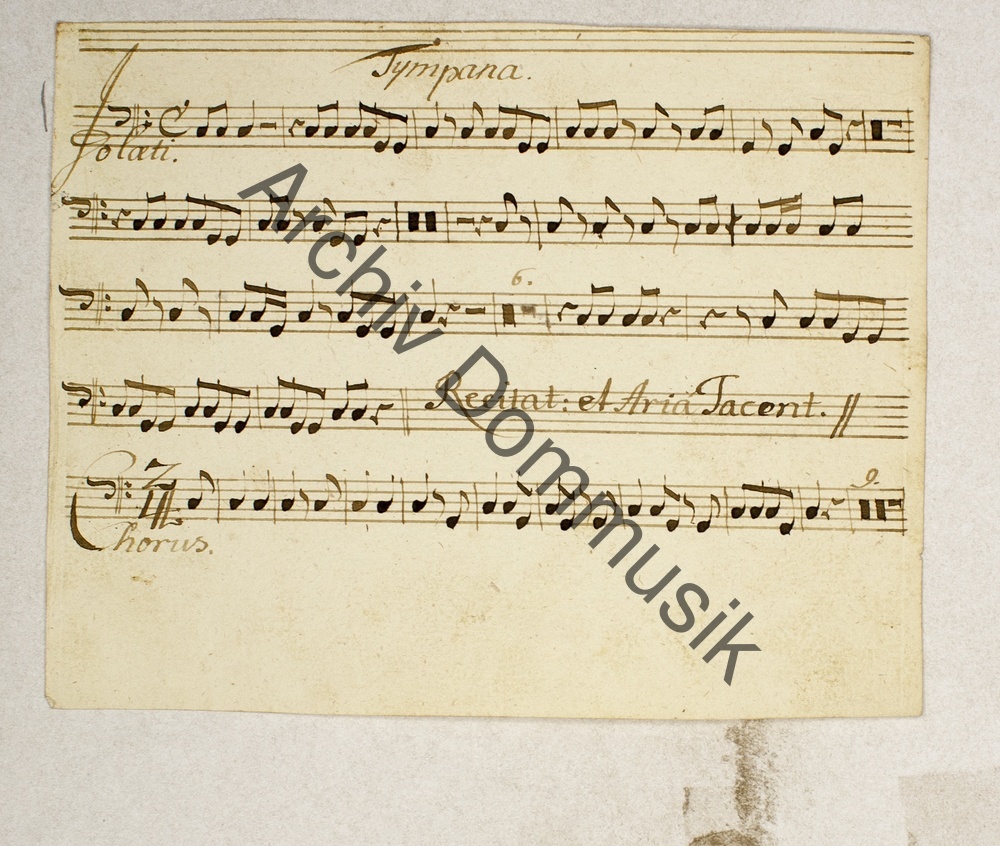 Tympana.
Jolæti.
6.
Recitat: et Aria Tacent.
9.
Chorus.
Archiv Dommusik